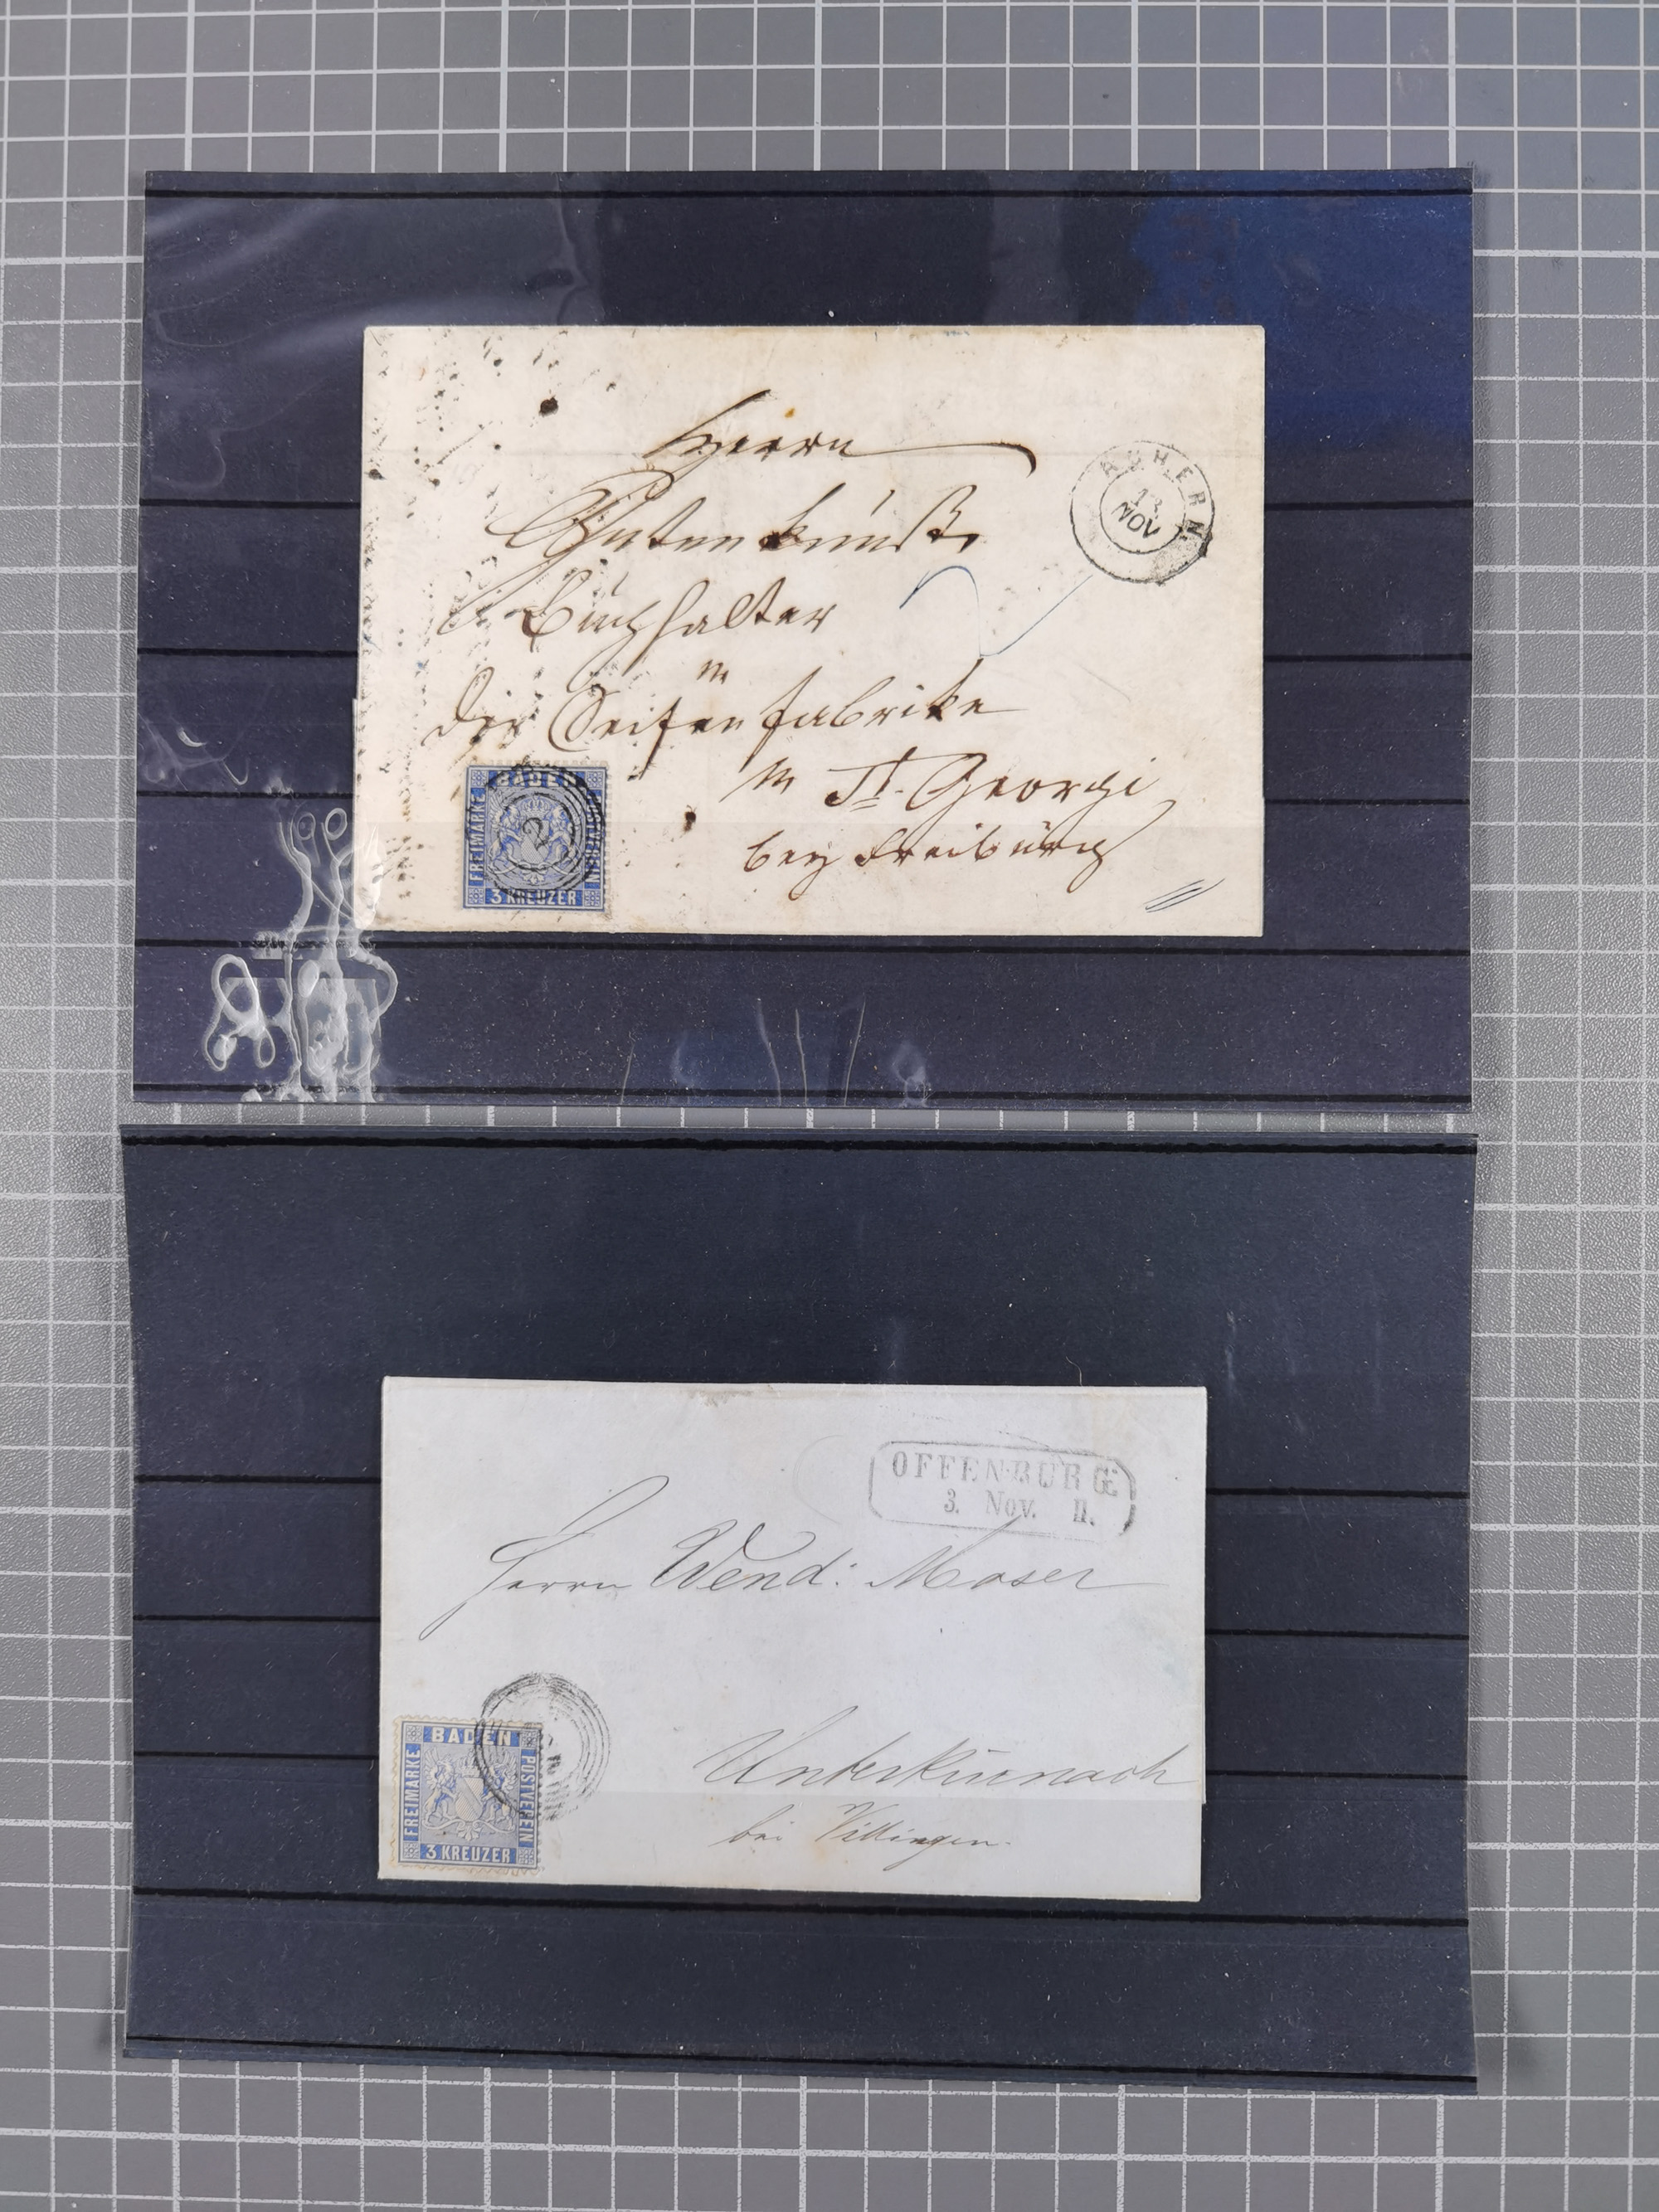 Herrn
Gutenkunst,
Buchhalter
in
der Seifenfabrike
in St. Georgi
bey Freiburg
ACHERN
13
NOV
BADEN
FREIMARKE
POSTVEREIN
3 KREUZER
2
OFFENBURG
3. Nov. II.
Herrn Wend: Moser
Unterkirnach
bei Villingen.
BADEN
FREIMARKE
POSTVEREIN
3 KREUZER